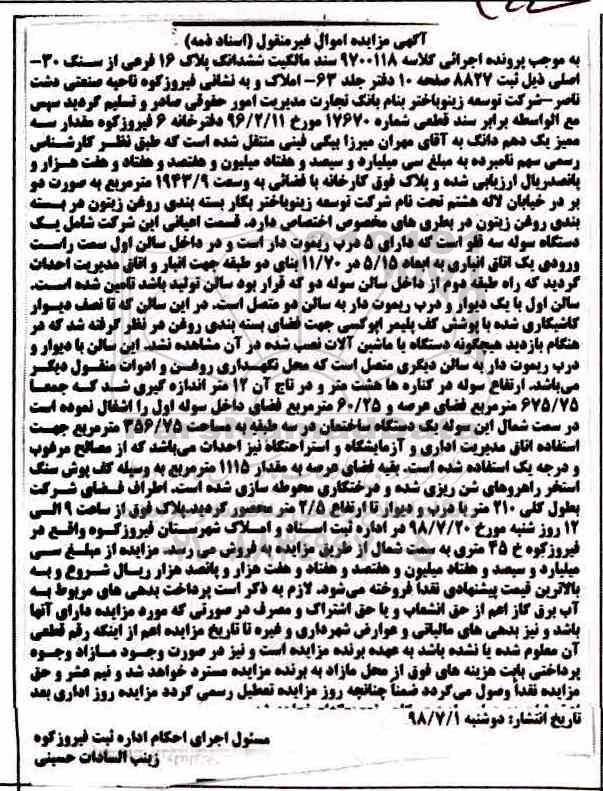 آگهی مزایده اموال غیرمنقول (اسناد ذمه)
به موجب پرونده اجرائی کلاسه ۹۷۰۰۱۱۸ سند مالکیت ششدانگ پلاک ۱۶ فرعی از سنگ ۳۰-
اصلی ذیل ثبت ۸۸۲۷ صفحه ۱۰ دفتر جلد ۶۳- املاک و به نشانی فیروزکوه ناحیه صنعتی دشت
ناصر-شرکت توسعه زیتوباختر بنام بانک تجارت مدیریت امور حقوقی صادر و تسلیم گردید سپس
مع الواسطه برابر سند قطعی شماره ۱۷۶۷۰ مورخ ۹۶/۲/۱۱ دفترخانه ۶ فیروزکوه مقدار سه
ممیز یک دهم دانگ به آقای مهران میرزا بیگی فینی منتقل شده است که طبق نظر کارشناس
رسمی سهم نامبرده به مبلغ سی میلیارد و سیصد و هفتاد میلیون و هفتصد و هفتاد و هفت هزار و
پانصدریال ارزیابی شده و پلاک فوق کارخانه با فضائی به وسعت ۱۹۴۳/۹ مترمربع به صورت دو
بر در خیابان لاله هشتم تحت نام شرکت توسعه زیتوباختر بکار بسته بندی روغن زیتون در بسته
بندی روغن زیتون در بطری های مخصوص اختصاص دارد. قسمت اعیانی این شرکت شامل یک
دستگاه سوله سه قلو است که دارای ۵ درب ریموت دار است و در داخل سالن اول سمت راست
ورودی یک اتاق انباری به ابعاد ۵/۱۵ در ۱۱/۷۰ بنای دو طبقه جهت انبار و اتاق مدیریت احداث
گردید که راه طبقه دوم از داخل سالن سوله دو که قرار بود سالن تولید باشد تامین شده است.
سالن اول با یک دیوار و درب ریموت دار به سالن دو متصل است. در این سالن که تا نصف دیوار
کاشیکاری شده با پوشش کف پلیمر اپوکسی جهت فضای بسته بندی روغن در نظر گرفته شد که در
هنگام بازدید هیچگونه دستگاه یا ماشین آلات نصب شده در آن مشاهده نشد. این سالن با دیوار و
درب ریموت دار به سالن دیگری متصل است که محل نگهداری روغن و ادوات منقول دیگر
می‌باشد. ارتفاع سوله در کناره ها هشت متر و در تاج آن ۱۲ متر اندازه گیری شد که جمعا
۶۷۵/۷۵ مترمربع فضای عرصه و ۶۰/۲۵ مترمربع فضای داخل سوله اول را اشغال نموده است
در سمت شمال این سوله یک دستگاه ساختمان در سه طبقه به مساحت ۳۵۶/۷۵ مترمربع جهت
استفاده اتاق مدیریت اداری و آزمایشگاه و استراحتگاه نیز احداث می‌باشد که از مصالح مرغوب
و درجه یک استفاده شده است. بقیه فضای عرصه به مقدار ۱۱۱۵ مترمربع به وسیله کف پوش سنگ
استخر راهروهای شن ریزی شده و درختکاری محوطه سازی شده است. اطراف فضای شرکت
بطول کلی ۲۱۰ متر با درب و دیوار تا ارتفاع ۲/۵ متر محصور گردید.پلاک فوق از ساعت ۹ الی
۱۲ روز شنبه مورخ ۹۸/۷/۲۰ در اداره ثبت اسناد و املاک شهرستان فیروزکوه واقع در
فیروزکوه خ ۴۵ متری به سمت شمال از طریق مزایده به فروش می رسد. مزایده از مبلغ سی
میلیارد و سیصد و هفتاد میلیون و هفتصد و هفتاد و هفت هزار و پانصد هزار ریال شروع و به
بالاترین قیمت پیشنهادی نقداً فروخته می‌شود. لازم به ذکر است پرداخت بدهی های مربوط به
آب برق گاز اعم از حق انشعاب و یا حق اشتراک و مصرف در صورتی که مورد مزایده دارای آنها
باشد و نیز بدهی های مالیاتی و عوارض شهرداری و غیره تا تاریخ مزایده اعم از اینکه رقم قطعی
آن معلوم شده یا نشده باشد به عهده برنده مزایده است و نیز در صورت وجود مازاد وجوه
پرداختی بابت هزینه های فوق از محل مازاد به برنده مزایده مسترد خواهد شد و نیم عشر و حق
مزایده نقداً وصول می‌گردد ضمناً چنانچه روز مزایده تعطیل رسمی گردد مزایده روز اداری بعد
تاریخ انتشار: دوشنبه ۹۸/۷/۱
مسئول اجرای احکام اداره ثبت فیروزکوه
زینب السادات حسینی